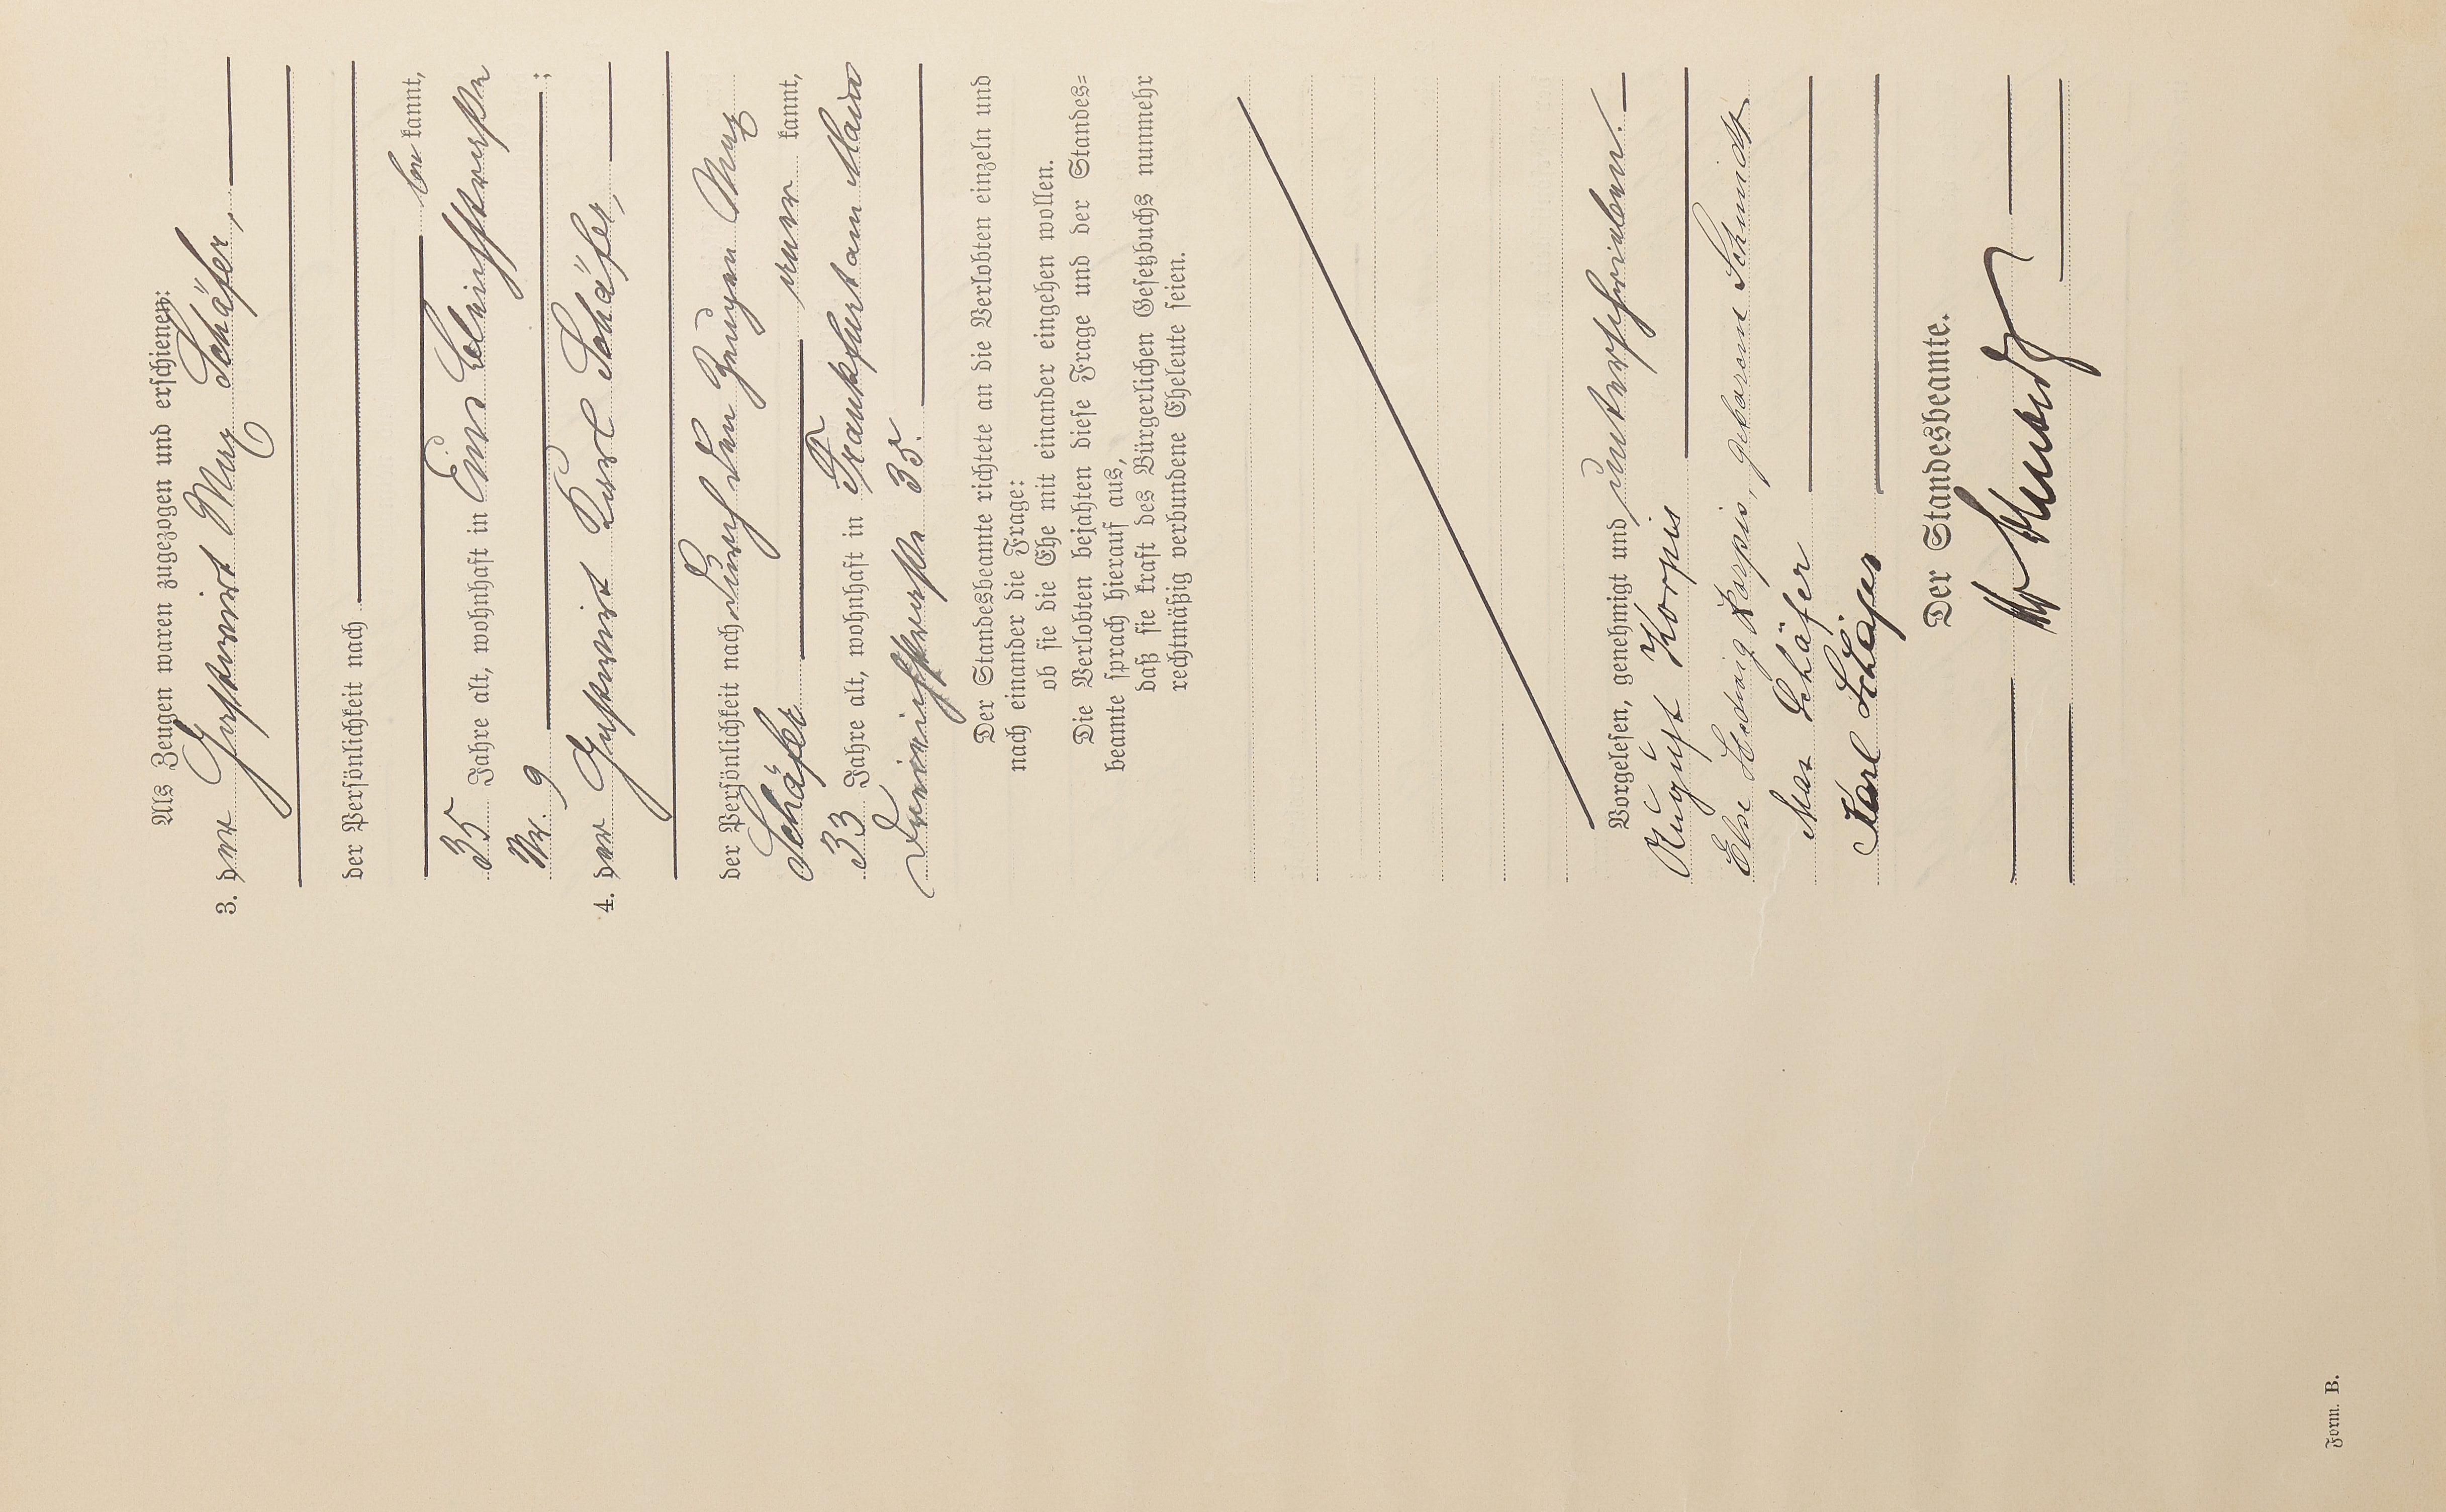 Als Zeugen waren zugezogen und erschienen:
3. der Gastwirt Max Schäfer,
der Persönlichkeit nach
be kannt,
35 Jahre alt, wohnhaft in Ems
Nr. 9 ;
4. der Gastwirt Karl Schäfer,
der Persönlichkeit nach durch den Zeugen Max
Schäfer aner kannt,
33 Jahre alt, wohnhaft in Frankfurt am Main
35.
Der Standesbeamte richtete an die Verlobten einzeln und
nach einander die Frage:
ob sie die Ehe mit einander eingehen wollen.
Die Verlobten bejahten diese Frage und der Standes-
beamte sprach hierauf aus,
daß sie kraft des Bürgerlichen Gesetzbuchs nunmehr
rechtmäßig verbundene Eheleute seien.
Vorgelesen, genehmigt und unterschrieben.
August Korpis
Else Hedwig Korpis, geborene Schmidt
Max Schäfer
Karl Schäfer
Der Standesbeamte.
Form. B.